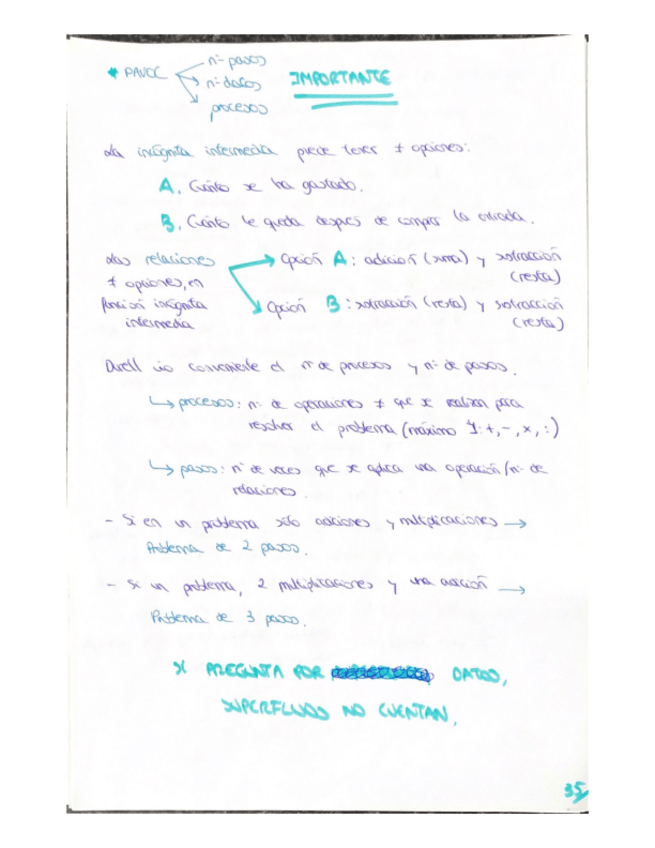 * PAVOC nº pasos
nº datos
procesos
IMPORTANTE
La incógnita intermedia puede tener ≠ opciones:
A. Cuánto se ha gastado.
B. Cuánto le queda después de comprar la entrada.
Las relaciones
≠ opciones, en
función incógnita
intermedia
Opción A: adición (suma) y sustracción
(resta)
Opción B: sustracción (resta) y sustracción
(resta)
no conveniente el nº de procesos y nº de pasos.
↳ procesos: nº de operaciones ≠ que se realizan para
resolver el problema (máximo : +, -, x, :)
↳ pasos: nº de veces que se aplica una operación/nº de
relaciones.
- Si en un problema sólo adiciones y multiplicaciones →
Problema de 2 pasos.
- Si un problema, 2 multiplicaciones y una adición →
Problema de 3 pasos.
SI PREGUNTA POR DATOS,
SUPERFLUOS NO CUENTAN.
35